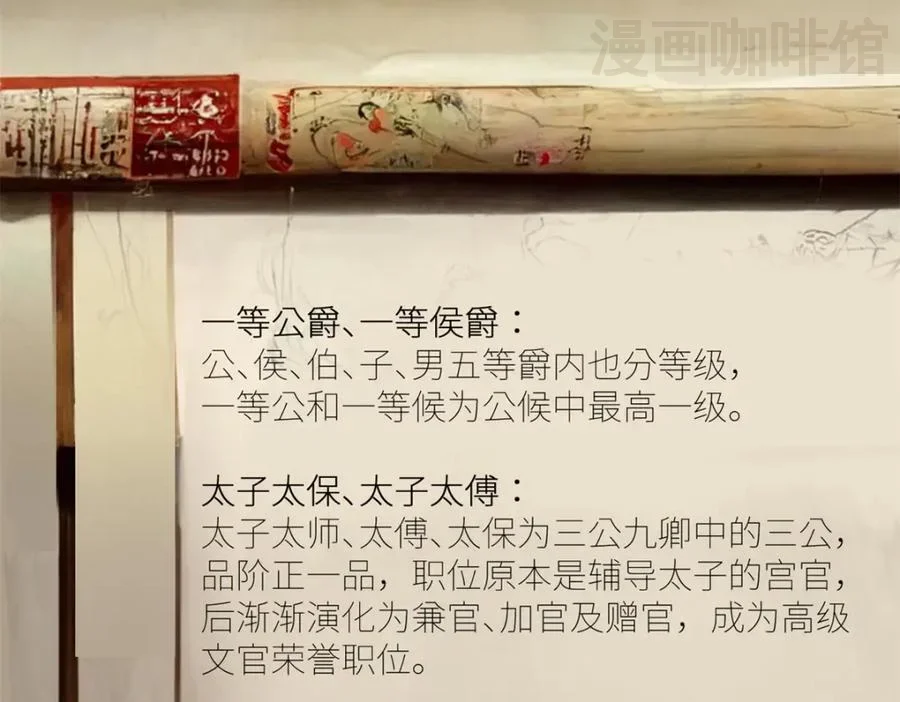 漫画咖啡馆
一等公爵、一等侯爵：
公、侯、伯、子、男五等爵内也分等级，
一等公和一等候为公候中最高一级。
太子太保、太子太傅：
太子太师、太傅、太保为三公九卿中的三公，
品阶正一品，职位原本是辅导太子的宫官，
后渐渐演化为兼官、加官及赠官，成为高级
文官荣誉职位。